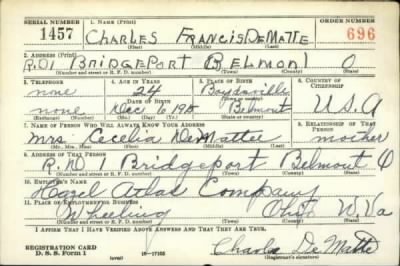 SERIAL NUMBER 1. NAME (Print) ORDER NUMBER
1457 CHARLES FRANCIS DEMATTE 696
(First) (Middle) (Last)
2. ADDRESS (Print)
R.D1 BRIDGEPORT BELMONT O
(Number and street or R. F. D. number) (Town) (County) (State)
3. TELEPHONE 4. AGE IN YEARS 5. PLACE OF BIRTH 6. COUNTRY OF CITIZENSHIP
none 24 Boydsville
DATE OF BIRTH (Town or county)
none Dec 1 1915 Belmont U.S.A
(Exchange) (Number) (Mo.) (Day) (Yr.) (State or country)
7. NAME OF PERSON WHO WILL ALWAYS KNOW YOUR ADDRESS 8. RELATIONSHIP OF THAT PERSON
Mrs. Cecelia DeMattee mother
(Mr., Mrs., Miss) (First) (Middle) (Last)
9. ADDRESS OF THAT PERSON
R.D. 1 Bridgeport Belmont O
(Number and street or R. F. D. number) (Town) (County) (State)
10. EMPLOYER'S NAME
Hazel Atlas Company
11. PLACE OF EMPLOYMENT OR BUSINESS
Wheeling Ohio W Va
(Number and street or R. F. D. number) (Town) (County) (State)
I AFFIRM THAT I HAVE VERIFIED ABOVE ANSWERS AND THAT THEY ARE TRUE.
REGISTRATION CARD
D. S. S. Form 1 (over) 16—17105 Charles DeMatte
(Registrant's signature)